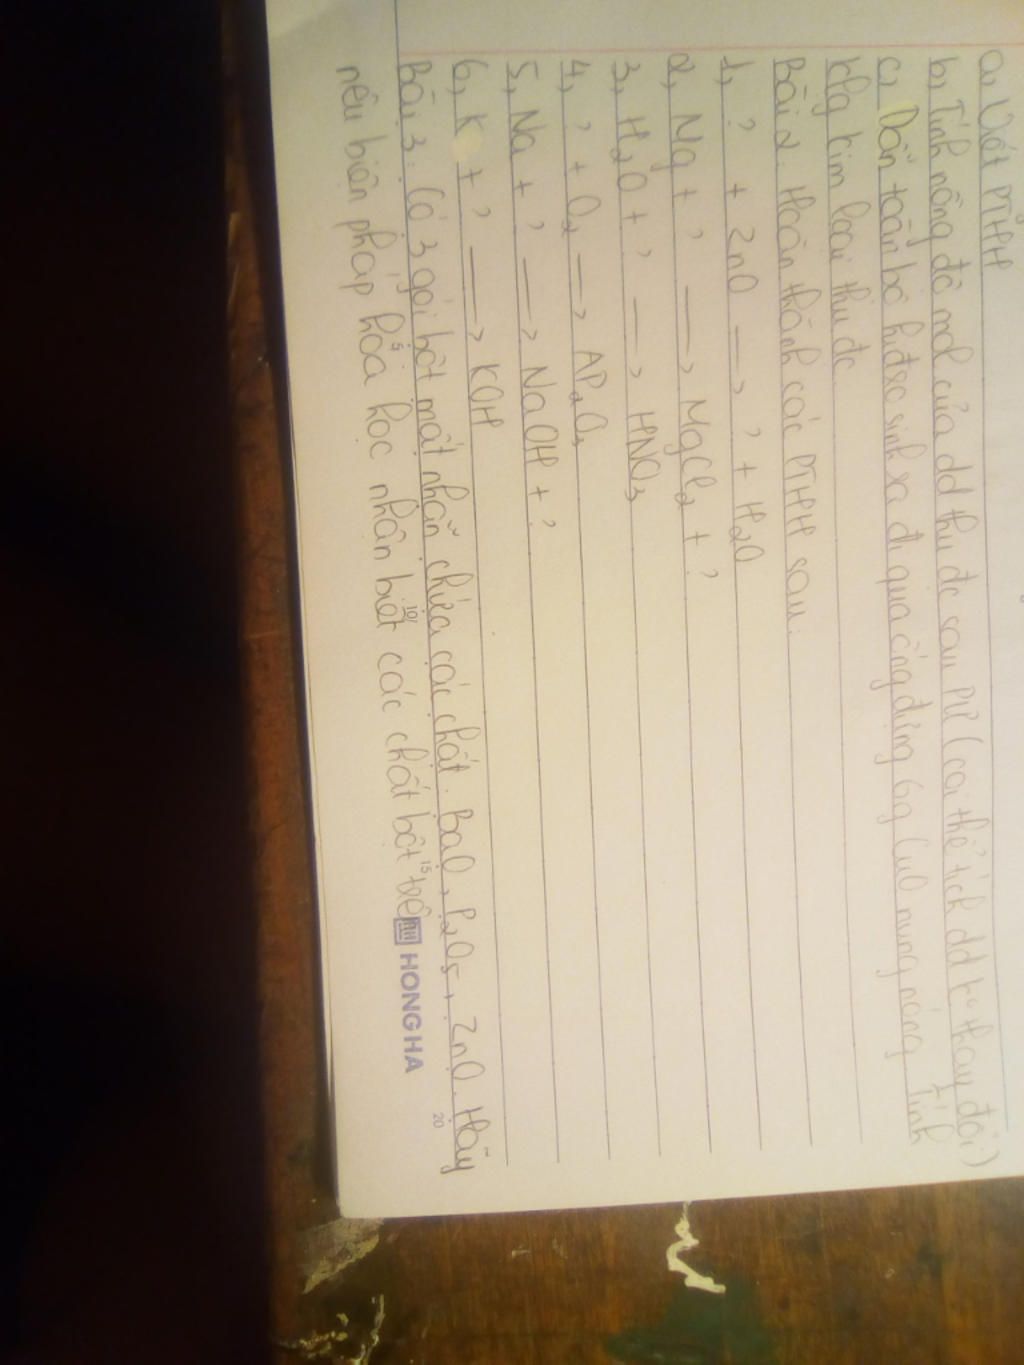 a, Viết PTHH
b, Tính nồng độ mol của dd thu đc sau PƯ (coi thể tích dd ko thay đổi)
c, Dẫn toàn bộ hiđro sinh ra đi qua ống đựng 6g CuO nung nóng. Tính
klg kim loại thu đc
Bài 2: Hoàn thành các PTHH sau:
1, ? + ZnO —> ? + H2O
2, Mg + ? —> MgCl2 + ?
3, H2O + ? —> HNO3
4, ? + O2 —> Al2O3
5, Na + ? —> NaOH + ?
6, K + ? —> KOH
Bài 3: Có 3 gói bột mất nhãn chứa các chất: BaO, P2O5, ZnO. Hãy
nêu biện pháp hóa học nhận biết các chất bột trên
5 10 15 20
HONG HA